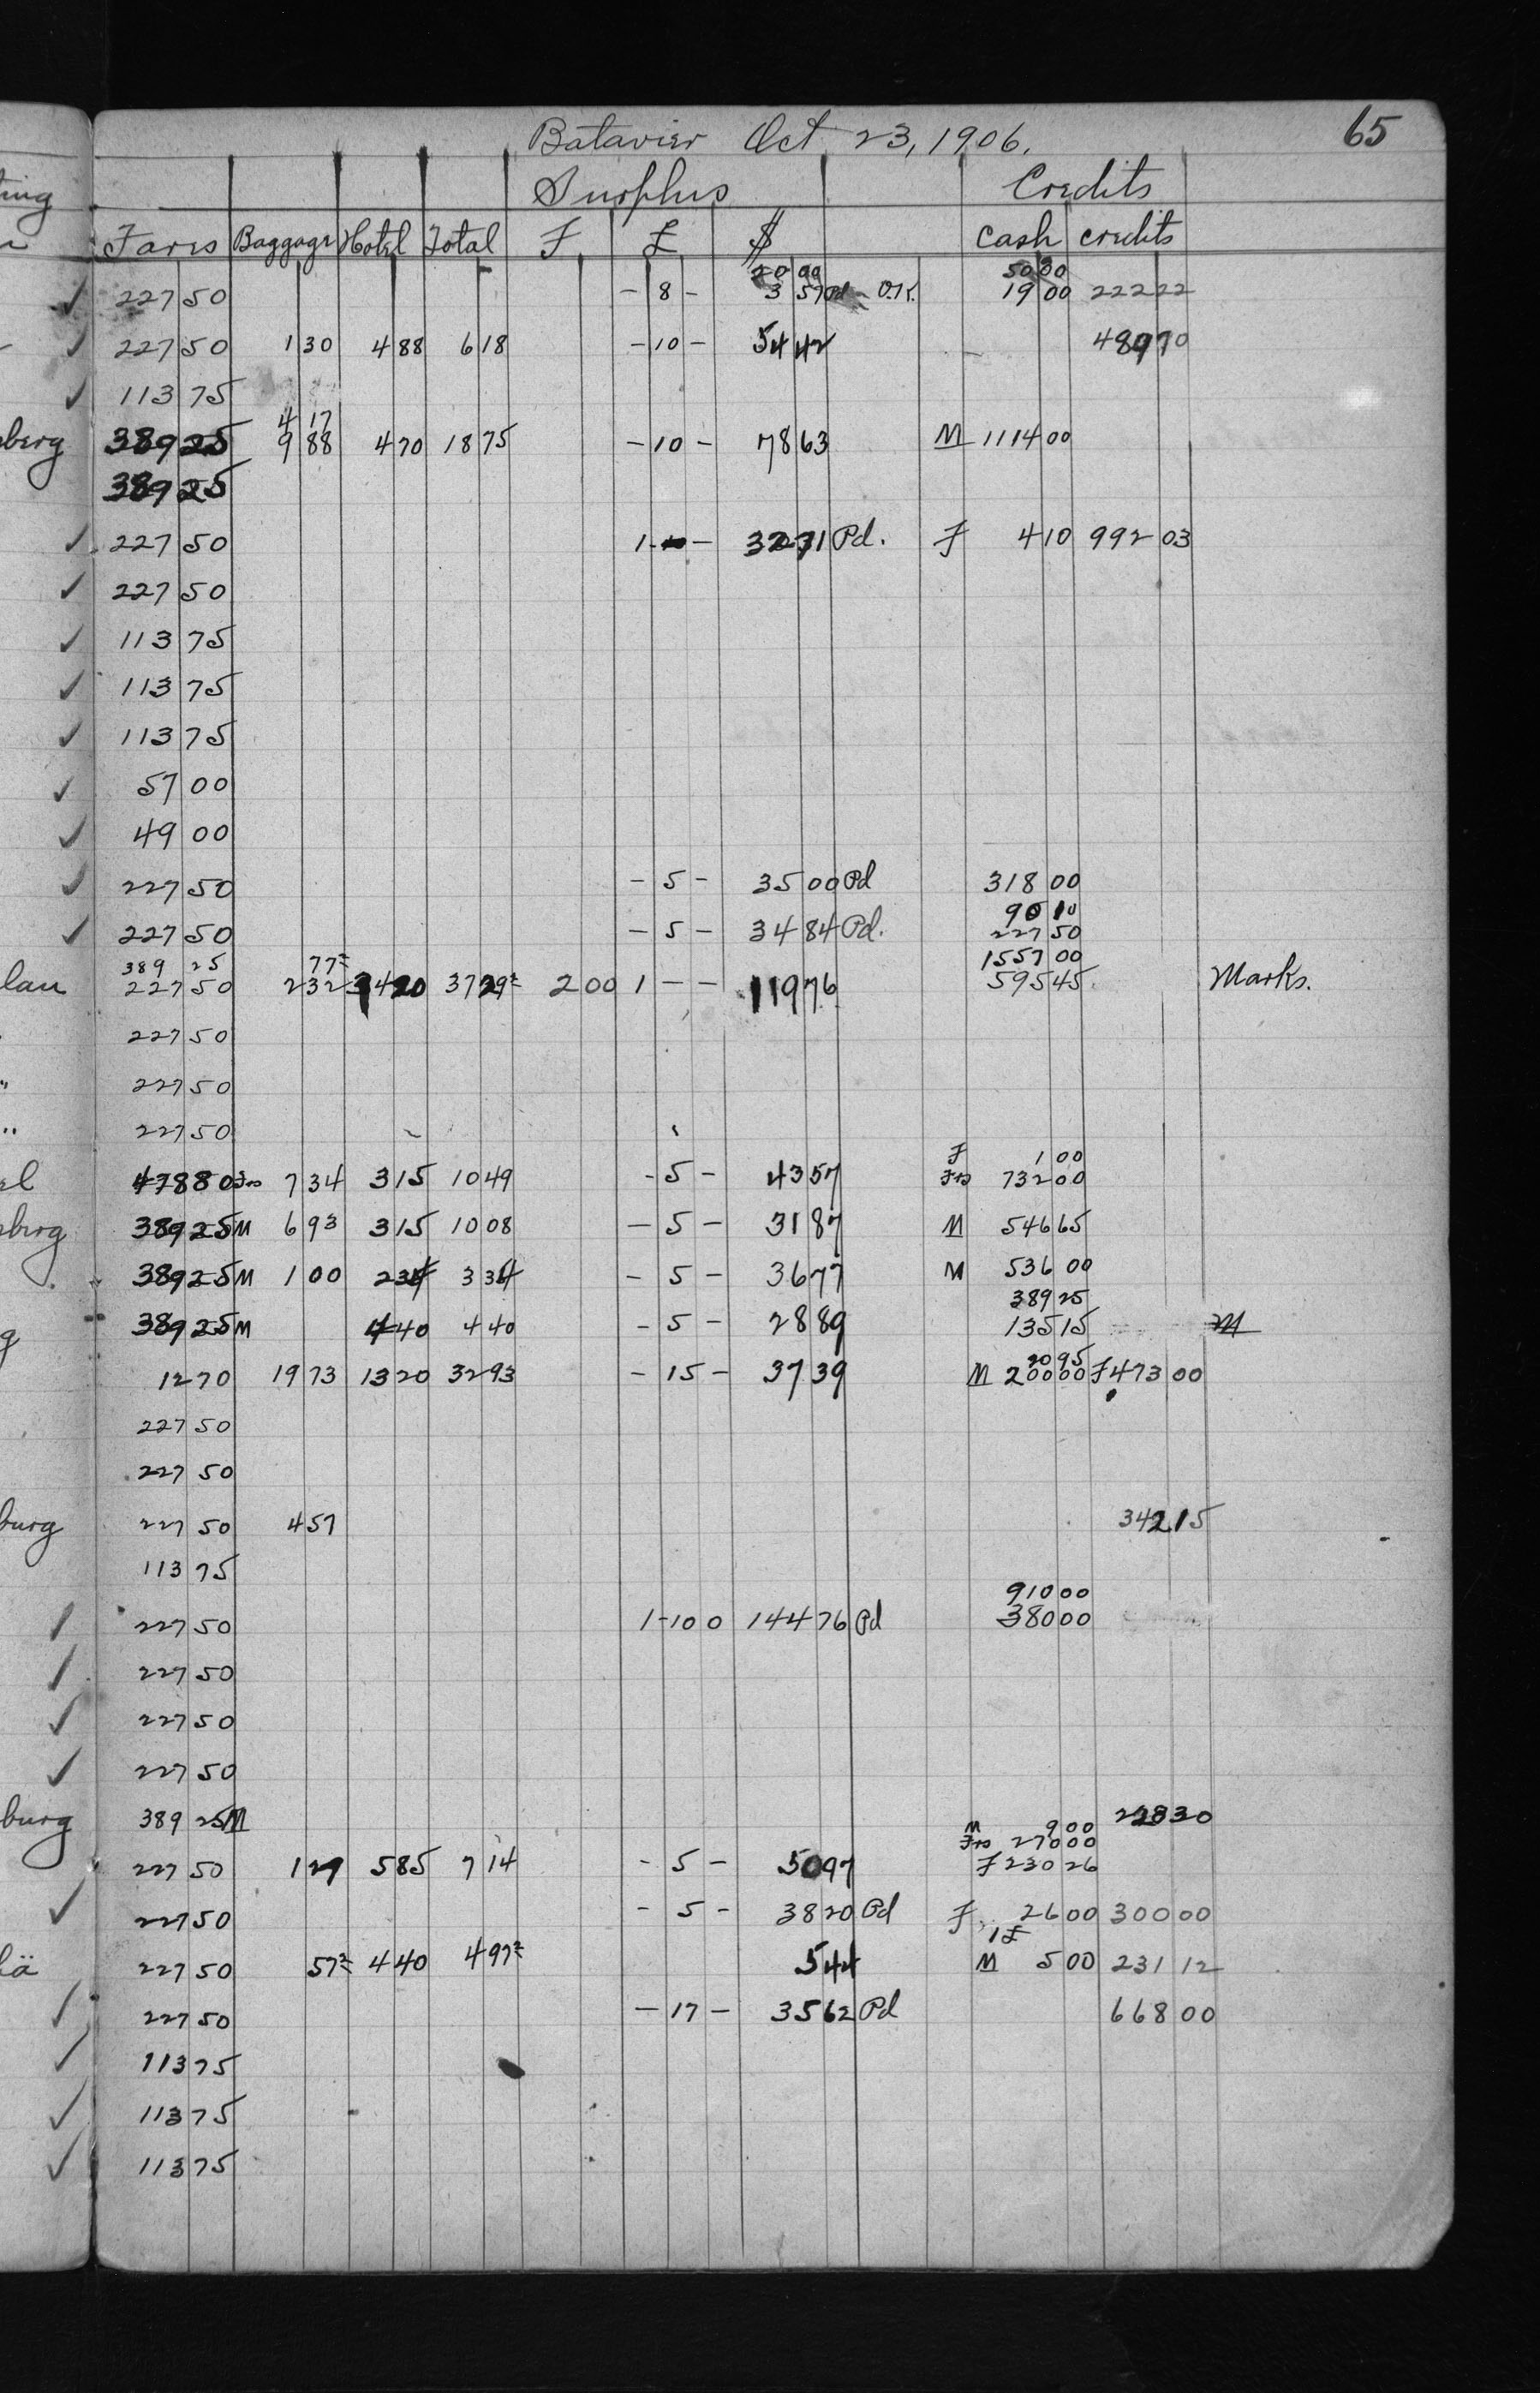 65
Batavier Oct 23, 1906.
Surplus Credits
Fares Baggage Hotel Total F £ $ Cash credits
20 00 50 00
✓ 227 50 - 8 - 3 57 Pd O.K. 19 00 222 22
✓ 227 50 1 30 4 88 6 18 - 10 - 54 42 489 70
✓ 113 75
4 17
berg 389 25 9 88 4 70 18 75 - 10 - 78 63 M 1114 00
389 25
✓ 227 50 1 - - 32 71 Pd. F 4 10 992 03
✓ 227 50
✓ 113 75
✓ 113 75
✓ 113 75
✓ 57 00
✓ 49 00
✓ 227 50 - 5 - 35 00 Pd 318 00
90 10
✓ 227 50 - 5 - 34 84 Pd. 227 50
389 25 77½ 1557 00
lau 227 50 2 32 34 20 37 29½ 2 00 1 - - 119 76 595 45 Marks.
227 50
" 227 50
" 227 50
F 1 00
el 478 80 Frs 7 34 3 15 10 49 - 5 - 43 57 Frs 732 00
berg 389 25 M 6 93 3 15 10 08 - 5 - 31 87 M 546 65
389 25 M 1 00 2 34 3 34 - 5 - 36 77 M 536 00
389 25
g 389 25 M 4 40 4 40 - 5 - 28 89 135 15 M
20 95
12 70 19 73 13 20 32 93 - 15 - 37 39 M 200 00 F 473 00
227 50
227 50
burg 227 50 4 57 342 15
113 75
910 00
✓ 227 50 1 - 10 0 144 76 Pd 380 00
✓ 227 50
✓ 227 50
✓ 227 50
burg 389 25 M 228 30
M 9 00
Frs 270 00
227 50 1 29 5 85 7 14 - 5 - 50 97 F 230 26
✓ 227 50 - 5 - 38 20 Pd F 26 00 300 00
1 F
hä 227 50 57½ 4 40 4 97½ 5 44 M 5 00 231 12
✓ 227 50 - 17 - 35 62 Pd 668 00
✓ 113 75
✓ 113 75
✓ 113 75